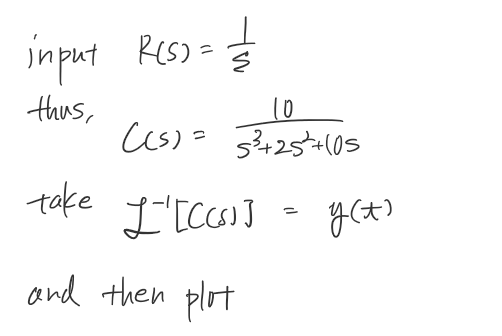 input R(s) = 1/s
thus,
C(s) = 10/(s³+2s²+10s)
take ℒ⁻¹[C(s)] = y(t)
and then plot